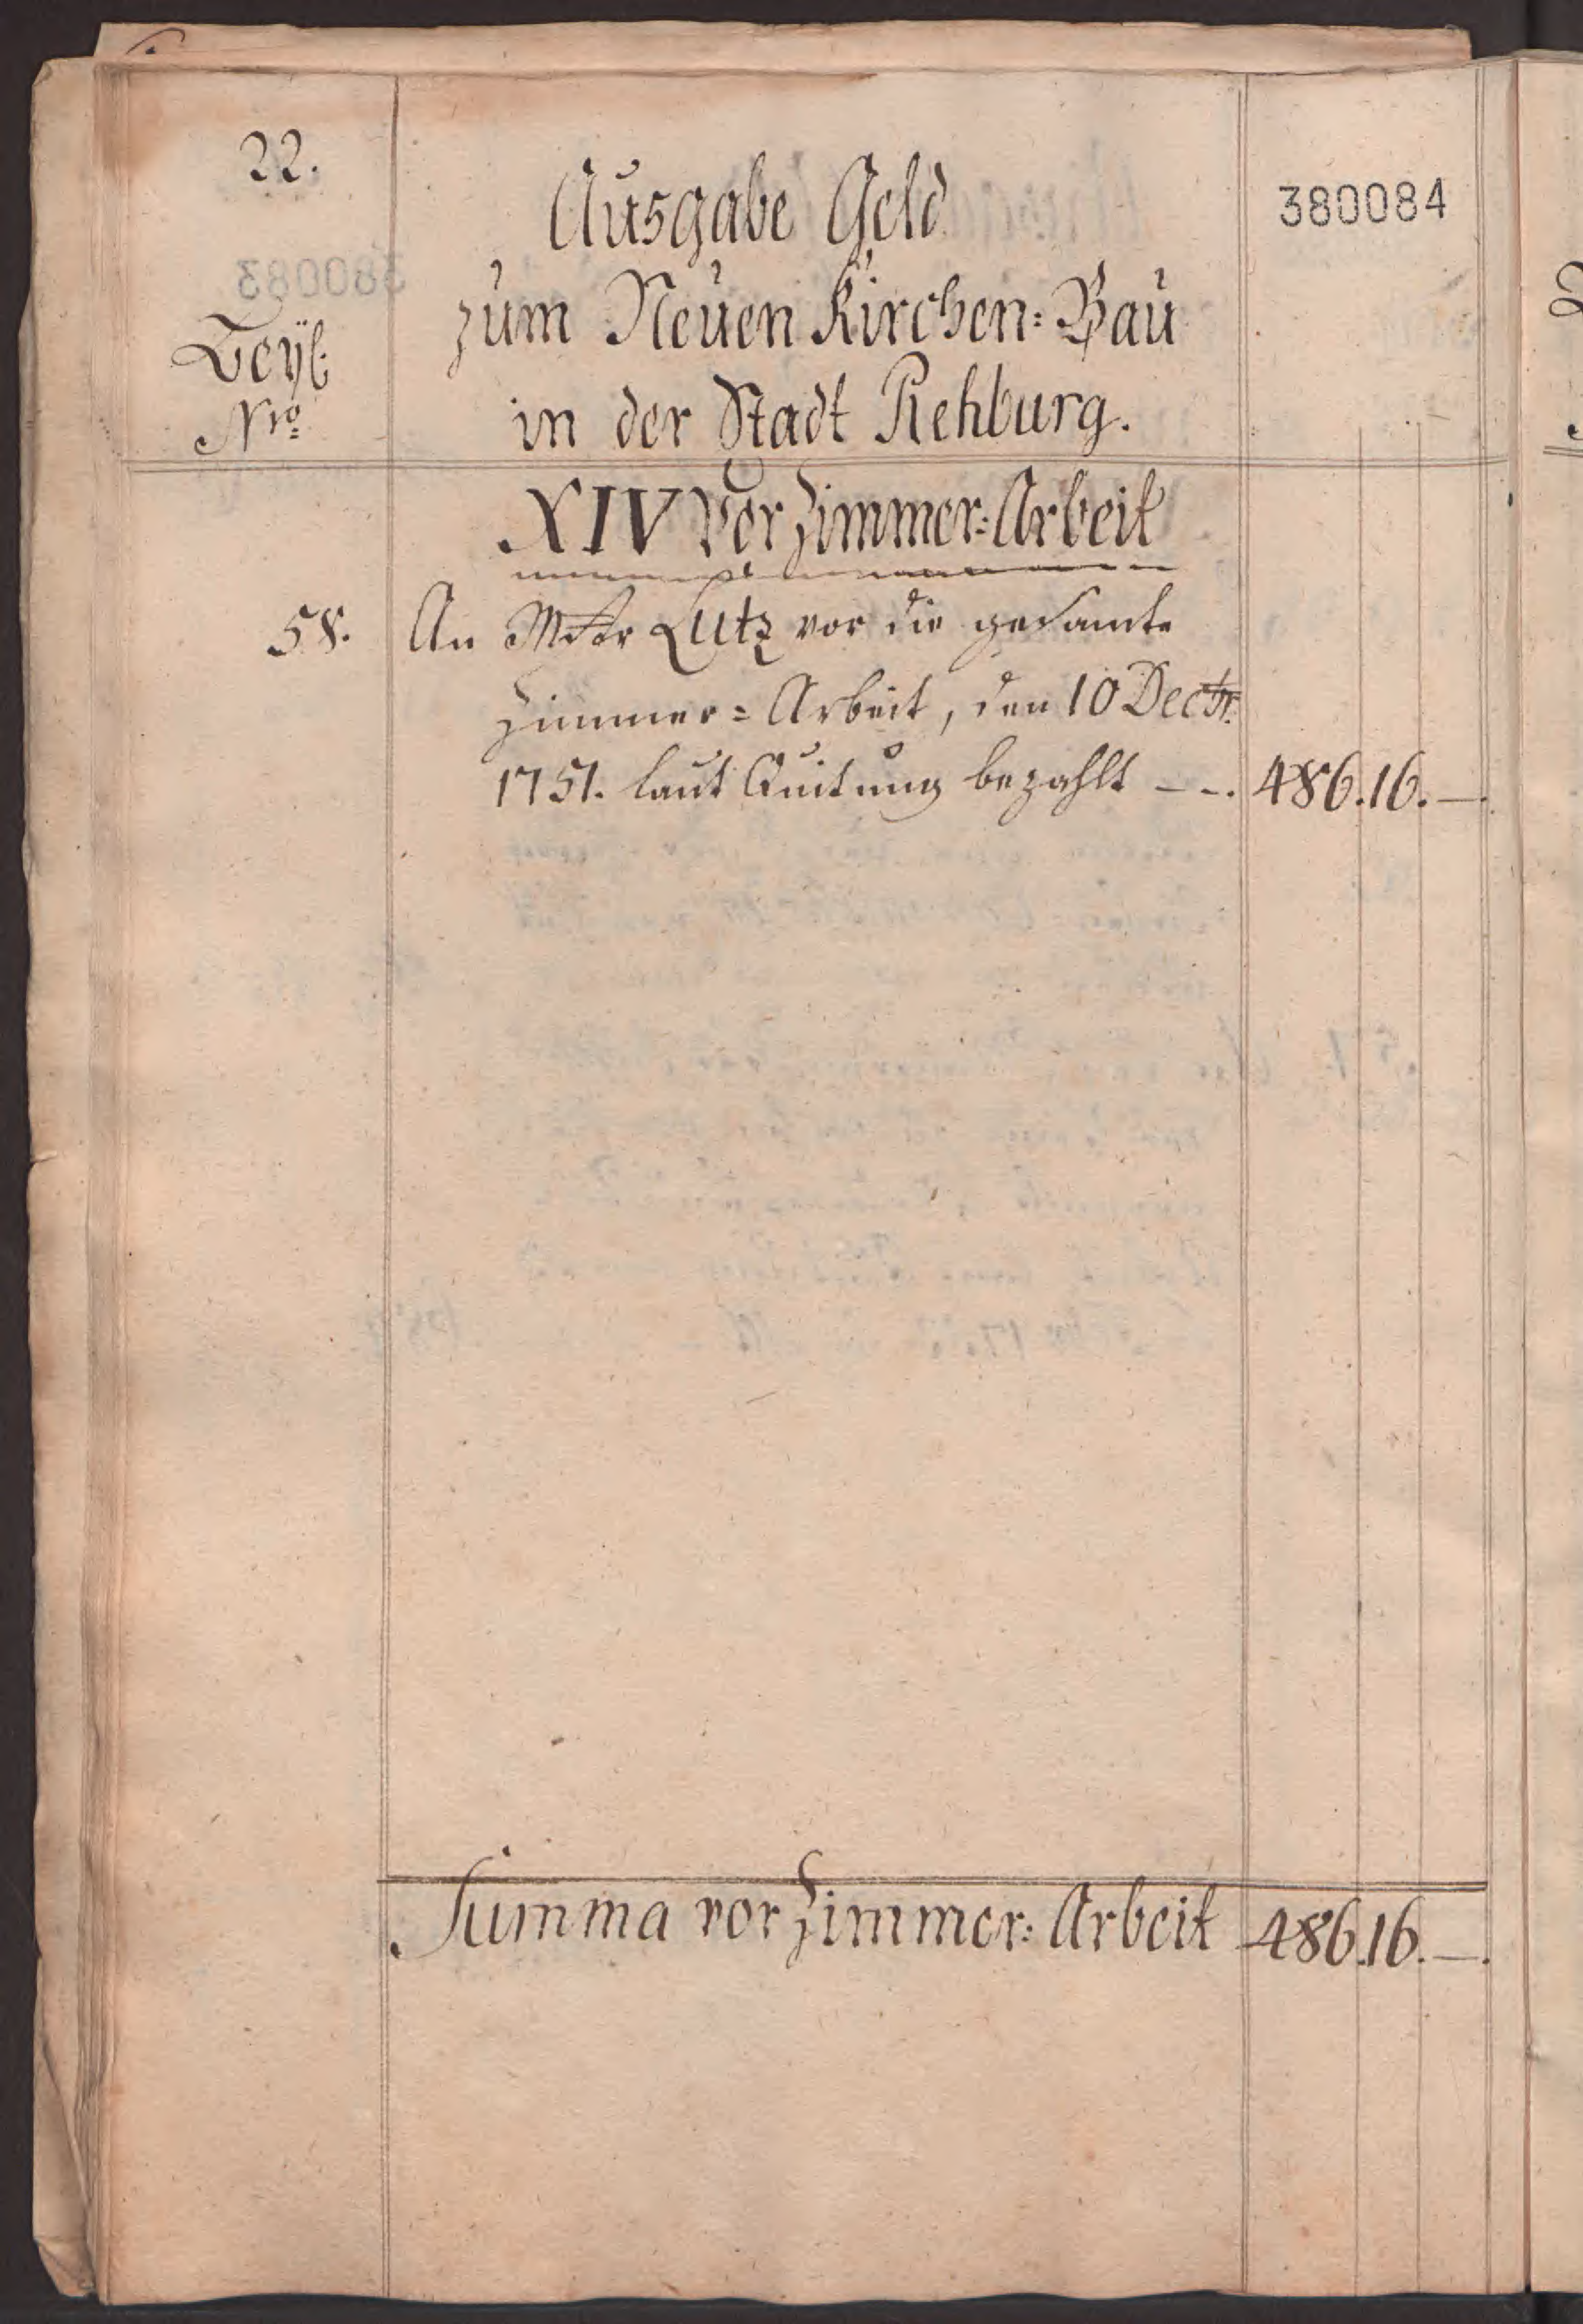 22.
380084
Ausgabe Geld
zum Neuen Kirchen=Bau
in der Stadt Rehburg.
Beyl.
Nro
XIV Vor Zimmer=Arbeit
58. An Mstr Lutz vor die gesamte
Zimmer=Arbeit, den 10 Decbr.
1751. laut Quitung bezahlt - -. 486. 16. -.
Summa vor Zimmer=Arbeit 486. 16. -.